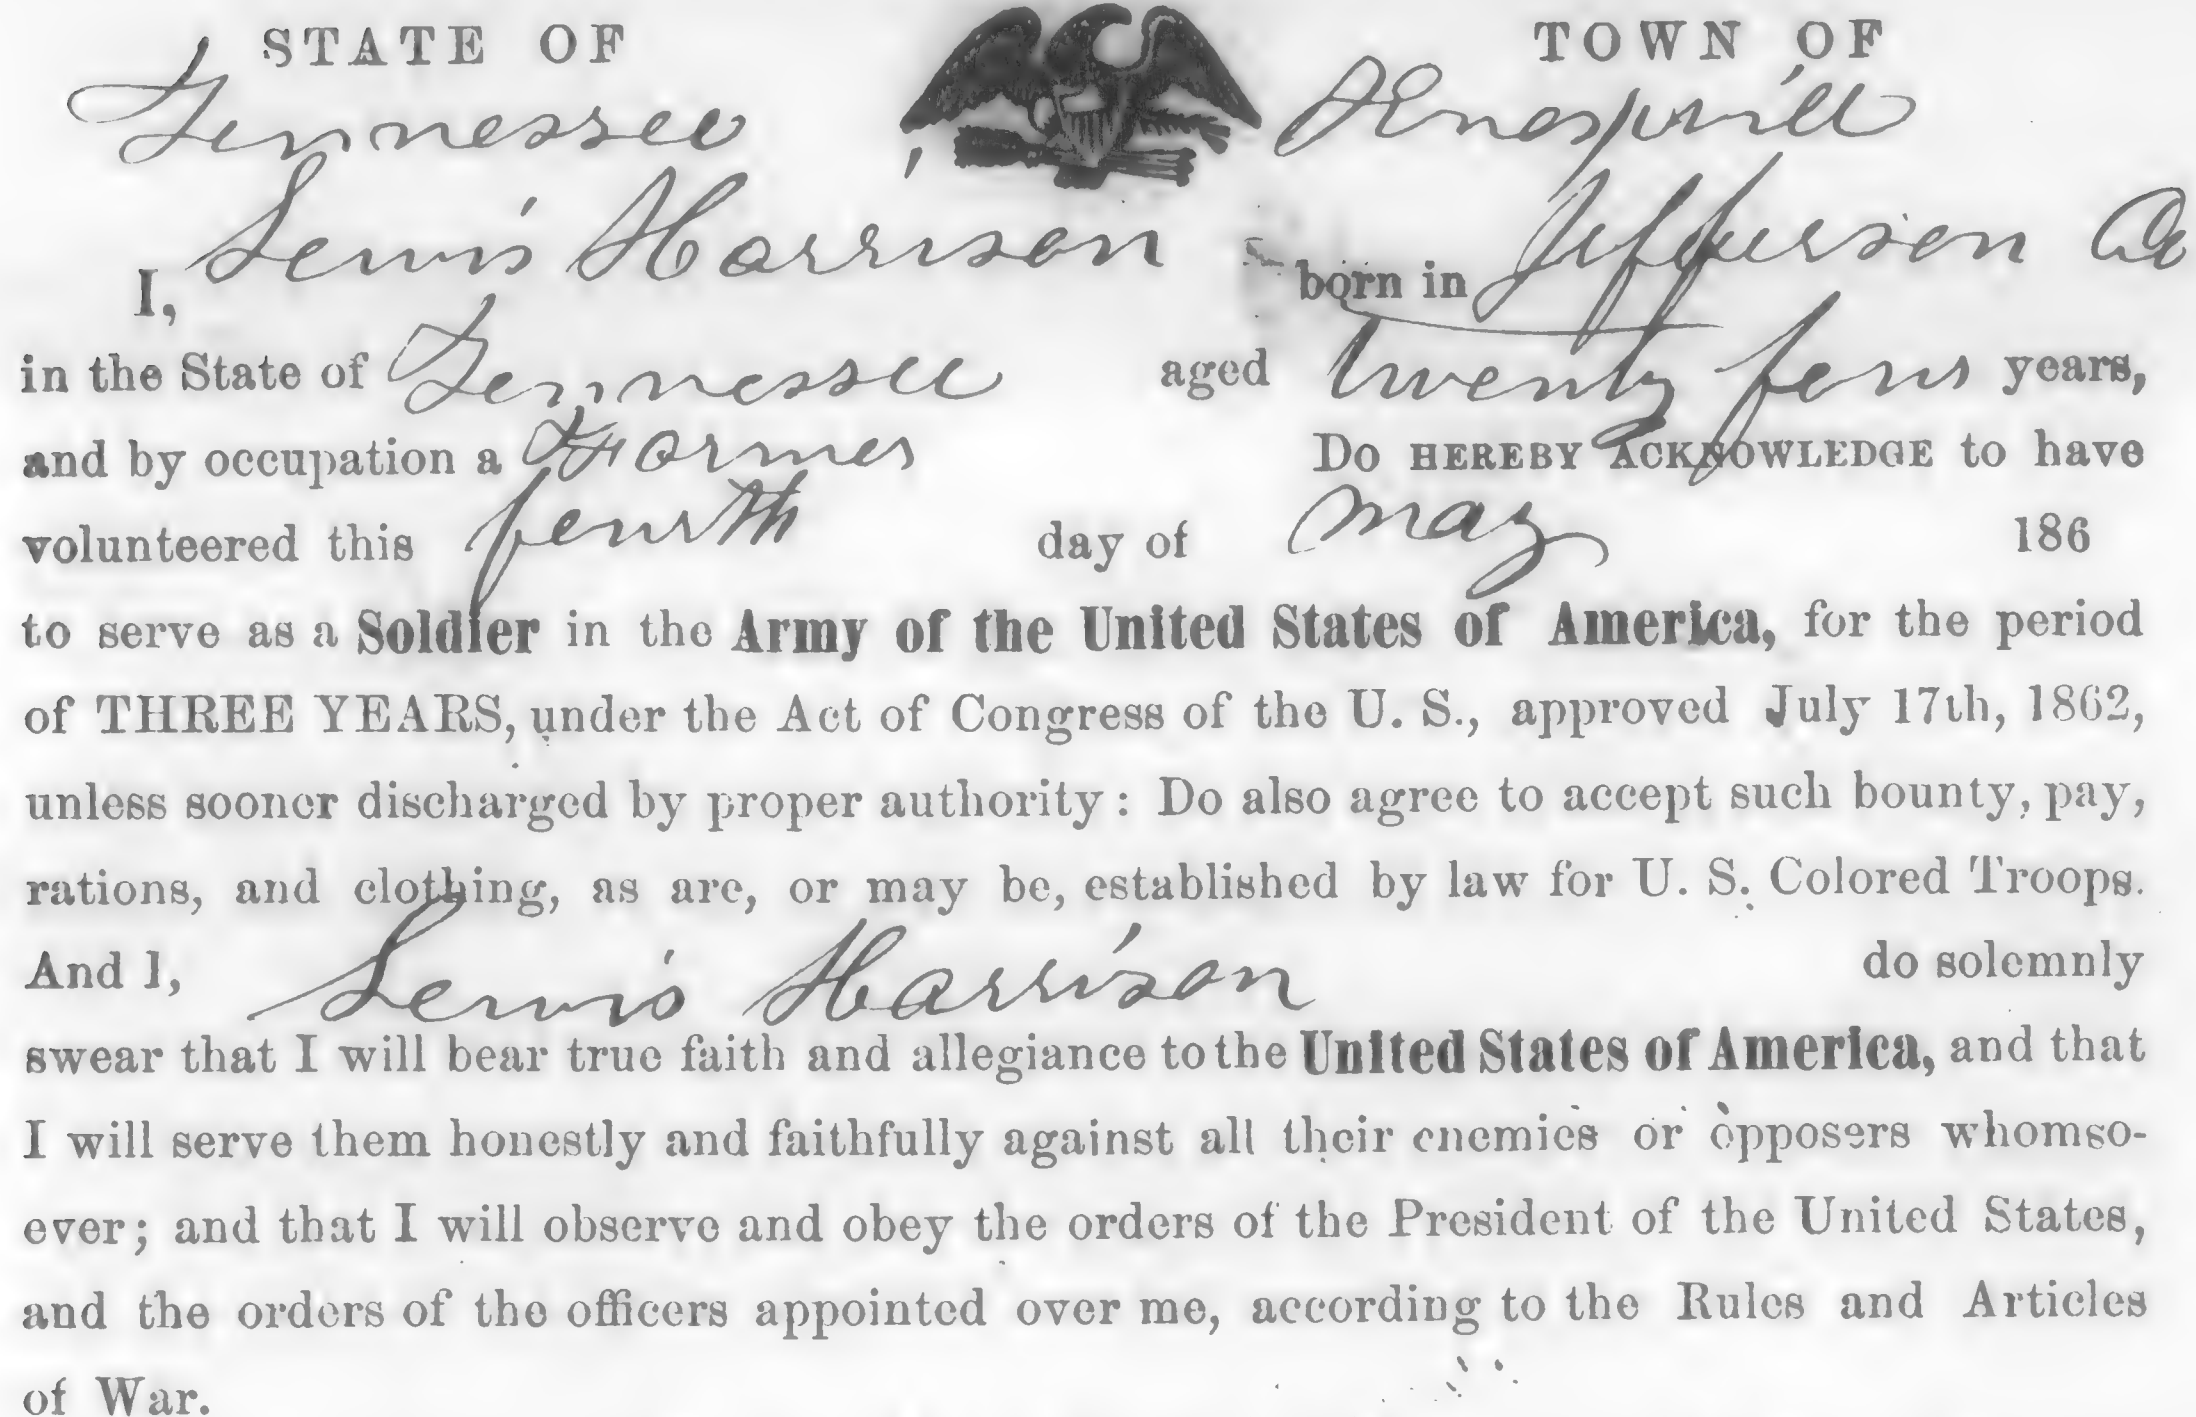 STATE OF TOWN OF
Tennessee Knoxvill
I, Lewis Harrison born in Jefferson Co
in the State of Tennessee aged twenty four years,
and by occupation a Farmer Do HEREBY ACKNOWLEDGE to have
volunteered this fourth day of may 186
to serve as a Soldier in the Army of the United States of America, for the period
of THREE YEARS, under the Act of Congress of the U. S., approved July 17th, 1862,
unless sooner discharged by proper authority: Do also agree to accept such bounty, pay,
rations, and clothing, as are, or may be, established by law for U. S. Colored Troops.
And I, Lewis Harrison do solemnly
swear that I will bear true faith and allegiance to the United States of America, and that
I will serve them honestly and faithfully against all their enemies or opposers whomso-
ever; and that I will observe and obey the orders of the President of the United States,
and the orders of the officers appointed over me, according to the Rules and Articles
of War.